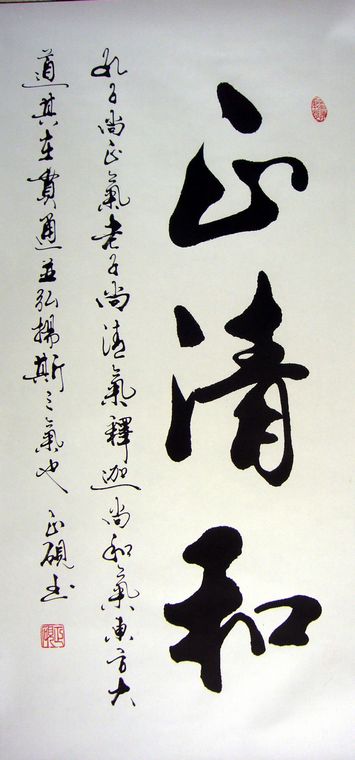 正清和
孔子尚正氣老子尚清氣釋迦尚和氣東方大
道其在貫通並弘揚斯三氣也 正硯書